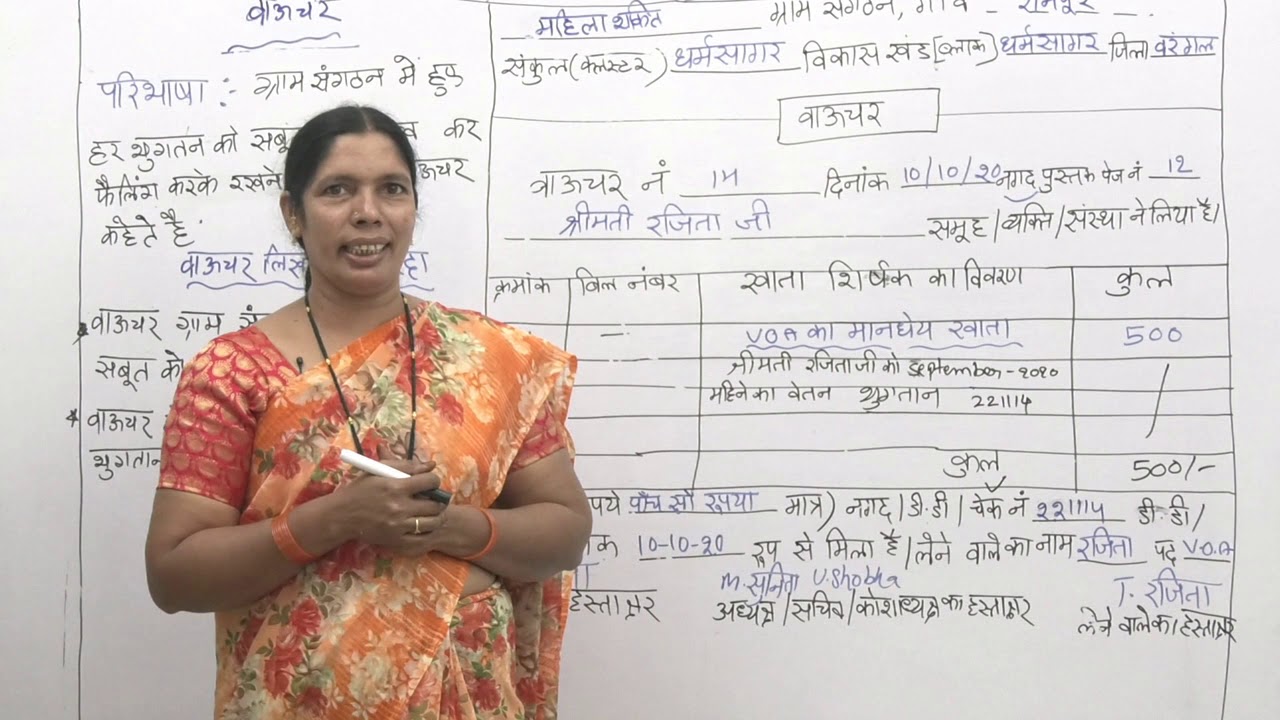 वाऊचर
परिभाषा :- ग्राम संगठन में हुए
हर भुगतान को कर
फैलिंग करके रखने वाऊचर
कहेते है
वाऊचर
* वाऊचर ग्राम
सबूत को
* वाऊचर
भुगतान
महिला शक्ति ग्राम संगठन, गाँव - रामपूर
संकुल (क्लस्टर) धर्मसागर विकास खंड [ब्लाक) धर्मसागर जिला वरंगल
वाऊचर
वाऊचर नं 14 दिनांक 10/10/20 नगद पुस्तक पेज नं 12
श्रीमती रजिता जी समूह / व्यक्ति / संस्था ने लिया है/
क्रमांक बिल नंबर खाता शिर्षक का विवरण कुल
- VOA का मानधेय खाता 500
श्रीमती रजिता जी को September - 2020
महिने का वेतन भुगतान 221114
कुल 500/-
पये पाँच सौ रुपया मात्र) नगद / डी.डी / चेक नं 221114 डी.डी/
क 10-10-20 रूप से मिला है / लेने वाले का नाम रजिता पद V.O.A
M.सुनिता U.Shobha T. रजिता
हस्ताक्षर अध्यक्ष / सचिव / कोशाध्यक्ष का हस्ताक्षर लेने वाले का हस्ताक्षर